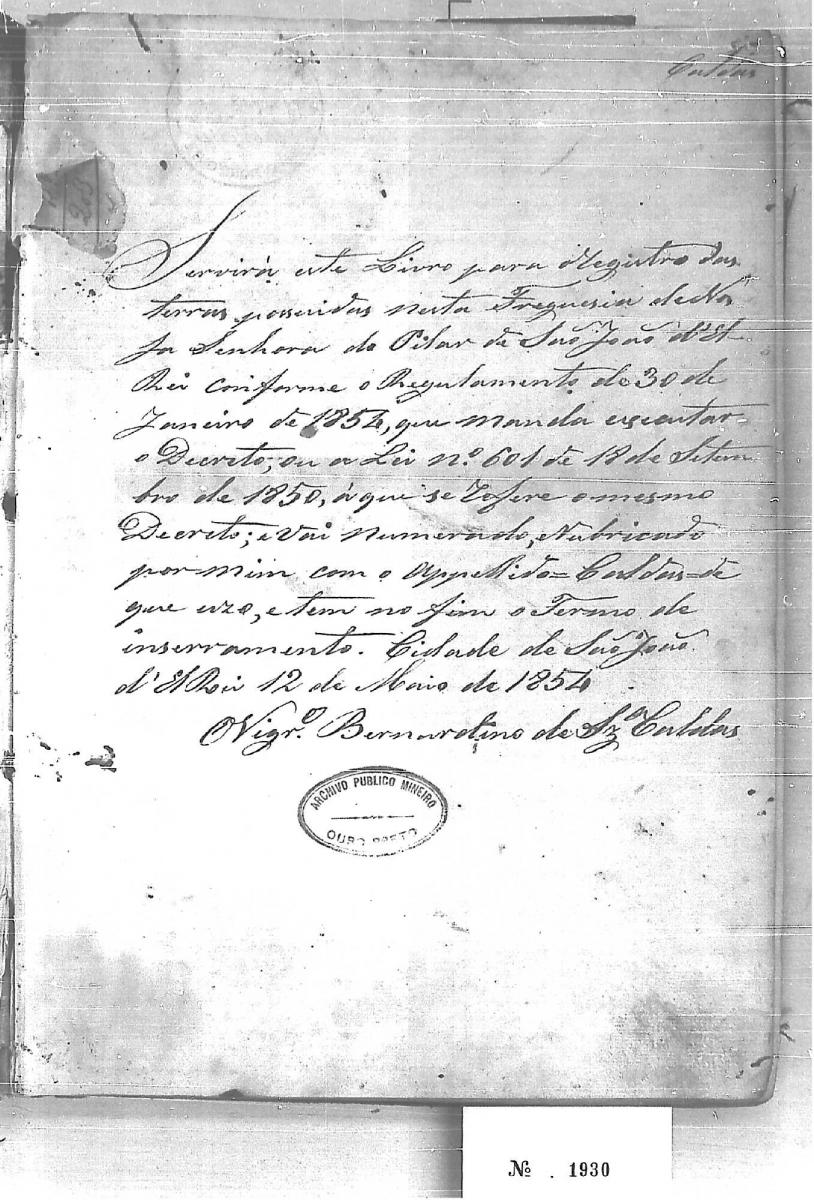 Caldas
205
Servirá este Livro para o Registro das
terras possuidas nesta Freguesia de Nos
sa Senhora do Pilar de São João d'El-
Rei conforme o Regulamento de 30 de
Janeiro de 1854, que manda executar
o Decreto, ou a Lei nº 601 de 18 de Setem
bro de 1850, á que se refere o mesmo
Decreto; e vai numerado, Rubricado
por mim com o Appellido = Caldas = de
que uzo, e tem no fim o Termo de
inserramento. Cidade de São João
d'El Rei 12 de Maio de 1854
O Vigrº Bernardino de Szª Caldas
ARCHIVO PUBLICO MINEIRO
OURO PRETO
Nº . 1930